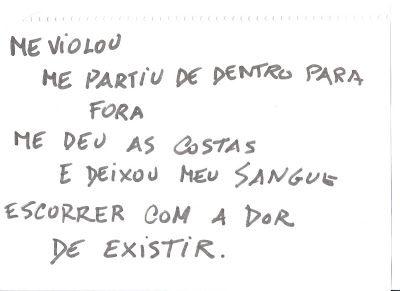 ME VIOLOU
ME PARTIU DE DENTRO PARA
FORA
ME DEU AS COSTAS
E DEIXOU MEU SANGUE
ESCORRER COM A DOR
DE EXISTIR.